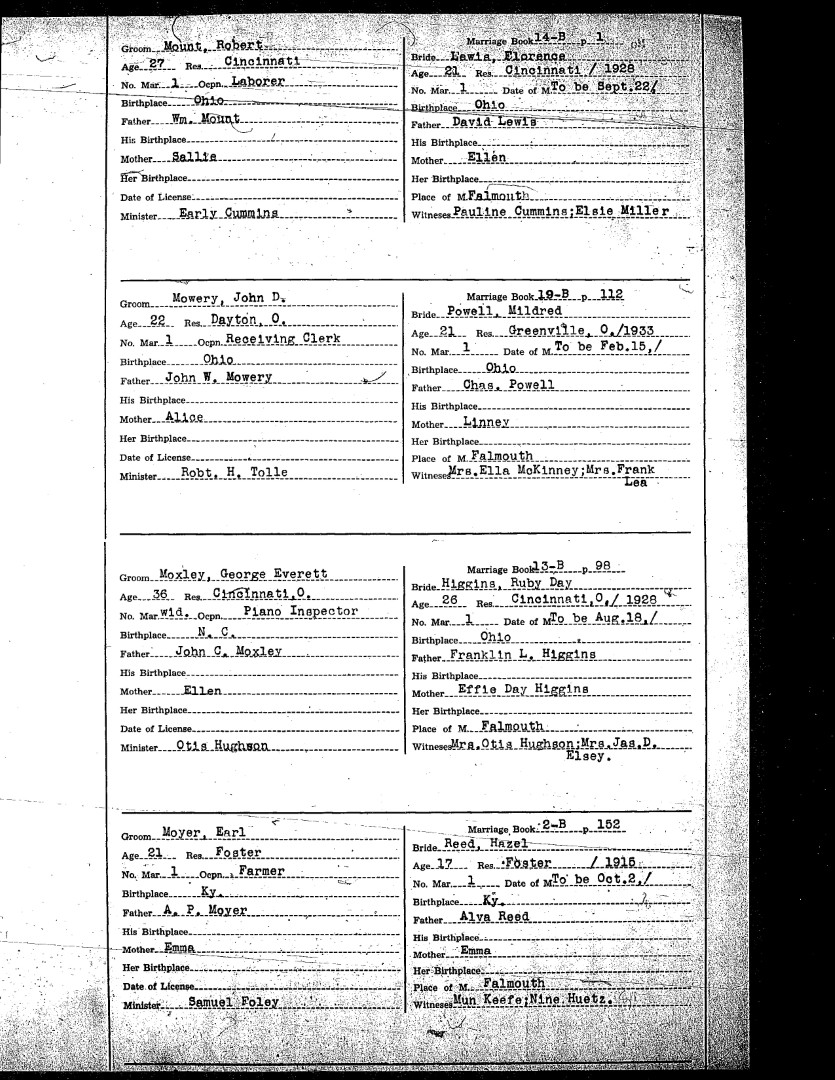 Groom Mount, Robert
Age 27 Res. Cincinnati
No. Mar. 1 Ocpn. Laborer
Birthplace Ohio
Father Wm. Mount
His Birthplace
Mother Sallie
Her Birthplace
Date of License
Minister Early Cummins
Marriage Book 14-B p. 1
Bride Lewis, Florence
Age 21 Res. Cincinnati / 1928
No. Mar. 1 Date of M. To be Sept.22/
Birthplace Ohio
Father David Lewis
His Birthplace
Mother Ellen
Her Birthplace
Place of M. Falmouth
Witneses Pauline Cummins;Elsie Miller
Groom Mowery, John D.
Age 22 Res. Dayton, O.
No. Mar. 1 Ocpn. Receiving Clerk
Birthplace Ohio
Father John W. Mowery
His Birthplace
Mother Alice
Her Birthplace
Date of License
Minister Robt. H. Tolle
Marriage Book 19-B p. 112
Bride Powell, Mildred
Age 21 Res. Greenville, O./1933
No. Mar. 1 Date of M. To be Feb.15,/
Birthplace Ohio
Father Chas. Powell
His Birthplace
Mother Linney
Her Birthplace
Place of M. Falmouth
Witneses Mrs.Ella McKinney;Mrs.Frank
Lea
Groom Moxley, George Everett
Age 36 Res. Cincinnati,O.
No. Mar. wid. Ocpn. Piano Inspector
Birthplace N. C.
Father John C. Moxley
His Birthplace
Mother Ellen
Her Birthplace
Date of License
Minister Otis Hughson
Marriage Book 13-B p. 98
Bride Higgins, Ruby Day
Age 26 Res. Cincinnati,O,/ 1928
No. Mar. 1 Date of M. To be Aug.18,/
Birthplace Ohio
Father Franklin L. Higgins
His Birthplace
Mother Effie Day Higgins
Her Birthplace
Place of M. Falmouth
Witneses Mrs.Otis Hughson;Mrs.Jas.D.
Elsey.
Groom Moyer, Earl
Age 21 Res. Foster
No. Mar. 1 Ocpn. Farmer
Birthplace Ky.
Father A. P. Moyer
His Birthplace
Mother Emma
Her Birthplace
Date of License
Minister Samuel Foley
Marriage Book 2-B p. 152
Bride Reed, Hazel
Age 17 Res. Foster / 1915
No. Mar. 1 Date of M. To be Oct.2,/
Birthplace Ky.
Father Alva Reed
His Birthplace
Mother Emma
Her Birthplace
Place of M. Falmouth
Witneses Mun Keefe;Nine Huetz.